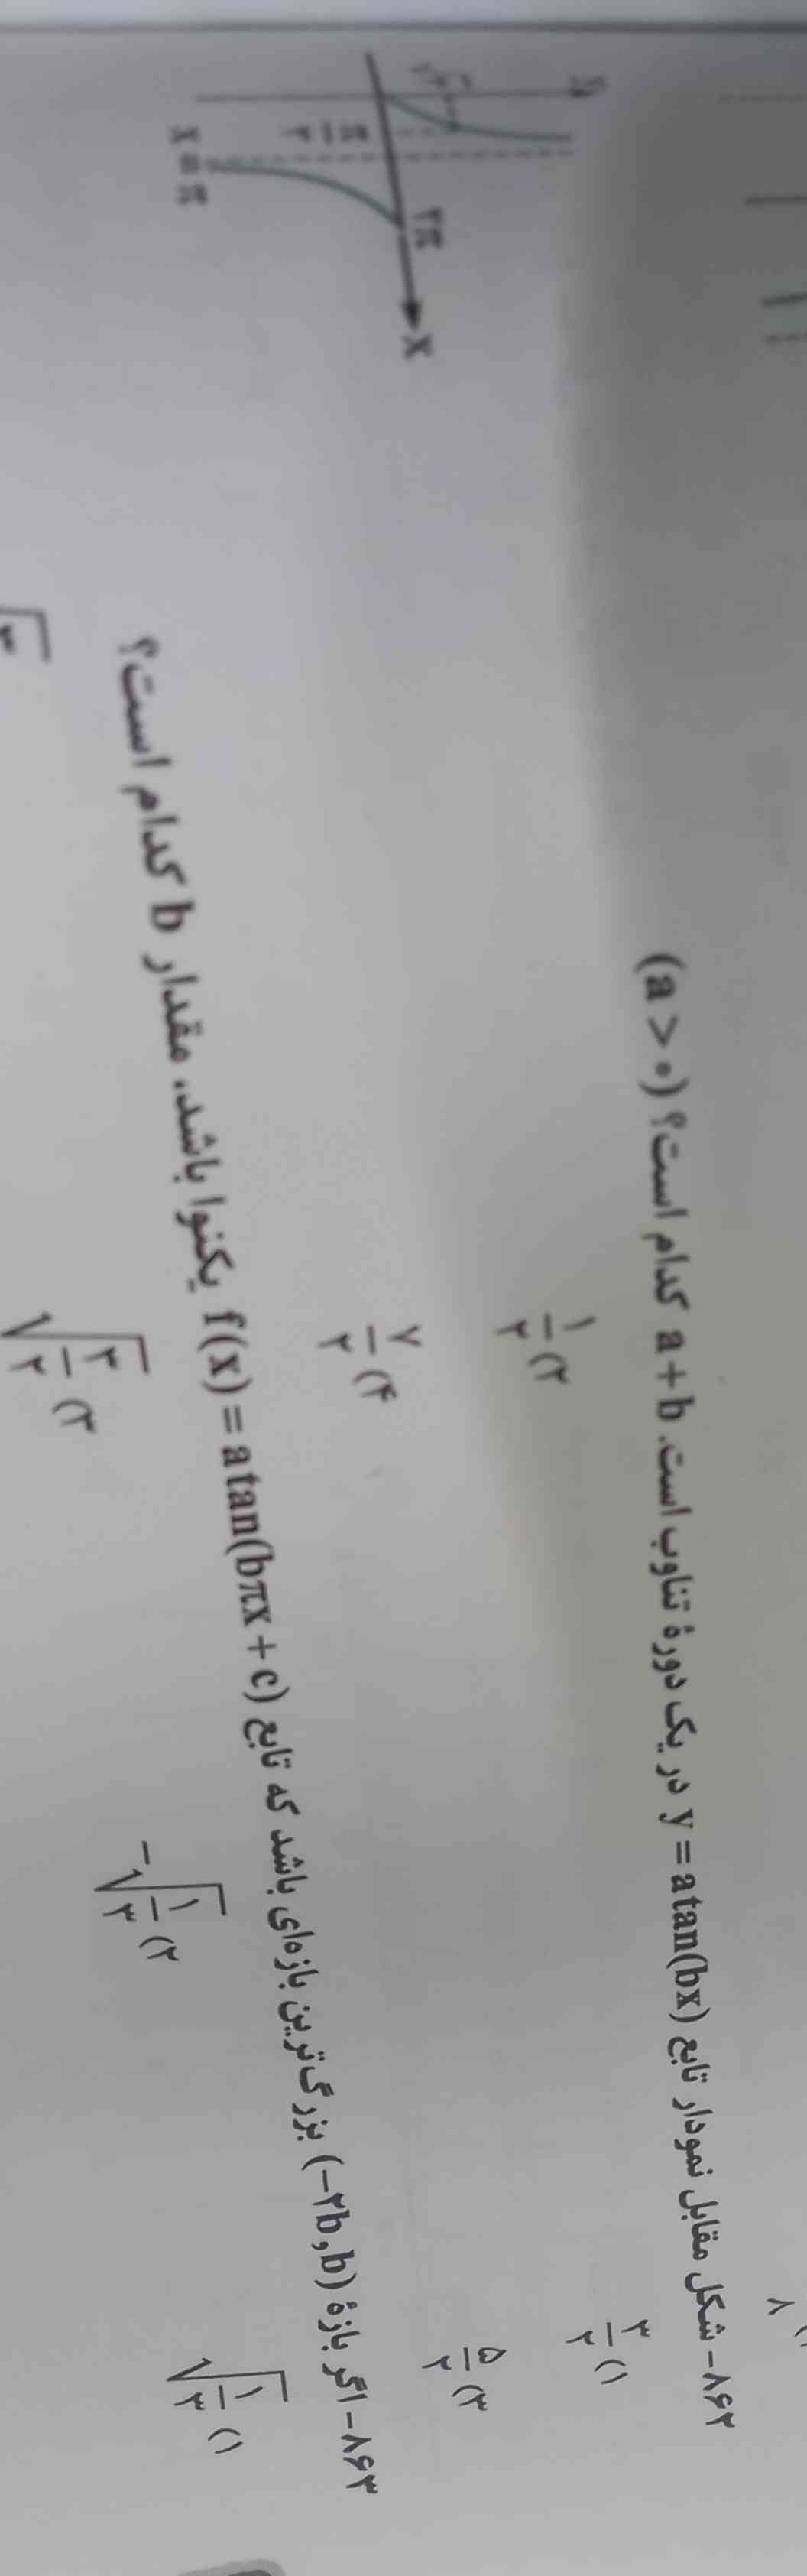 ۸۶۲- شکل مقابل نمودار تابع y = a tan(bx) در یک دورهٔ تناوب است. a + b کدام است؟ (a > ۰)
۱) ۳/۲
۲) ۱/۲
۳) ۵/۲
۴) ۷/۲
y
π/۲
۲π
x
x = π
۸۶۳- اگر بازهٔ (−۲b, b) بزرگ‌ترین بازه‌ای باشد که تابع f(x) = a tan(bπx + c) یکنوا باشد، مقدار b کدام است؟
۱) √(۱/۳)
۲) −√(۱/۳)